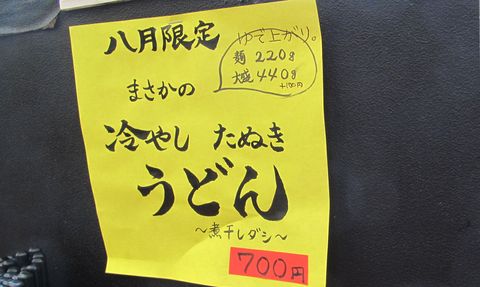 八月限定
ゆで上がり。
麺 220g
大盛 440g
+100円
まさかの
冷やし たぬき
うどん
~煮干しダシ~
700円